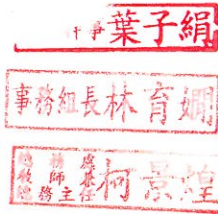 幹事葉子絹
事務組長林育嫺
教師兼總務主任柯景煌